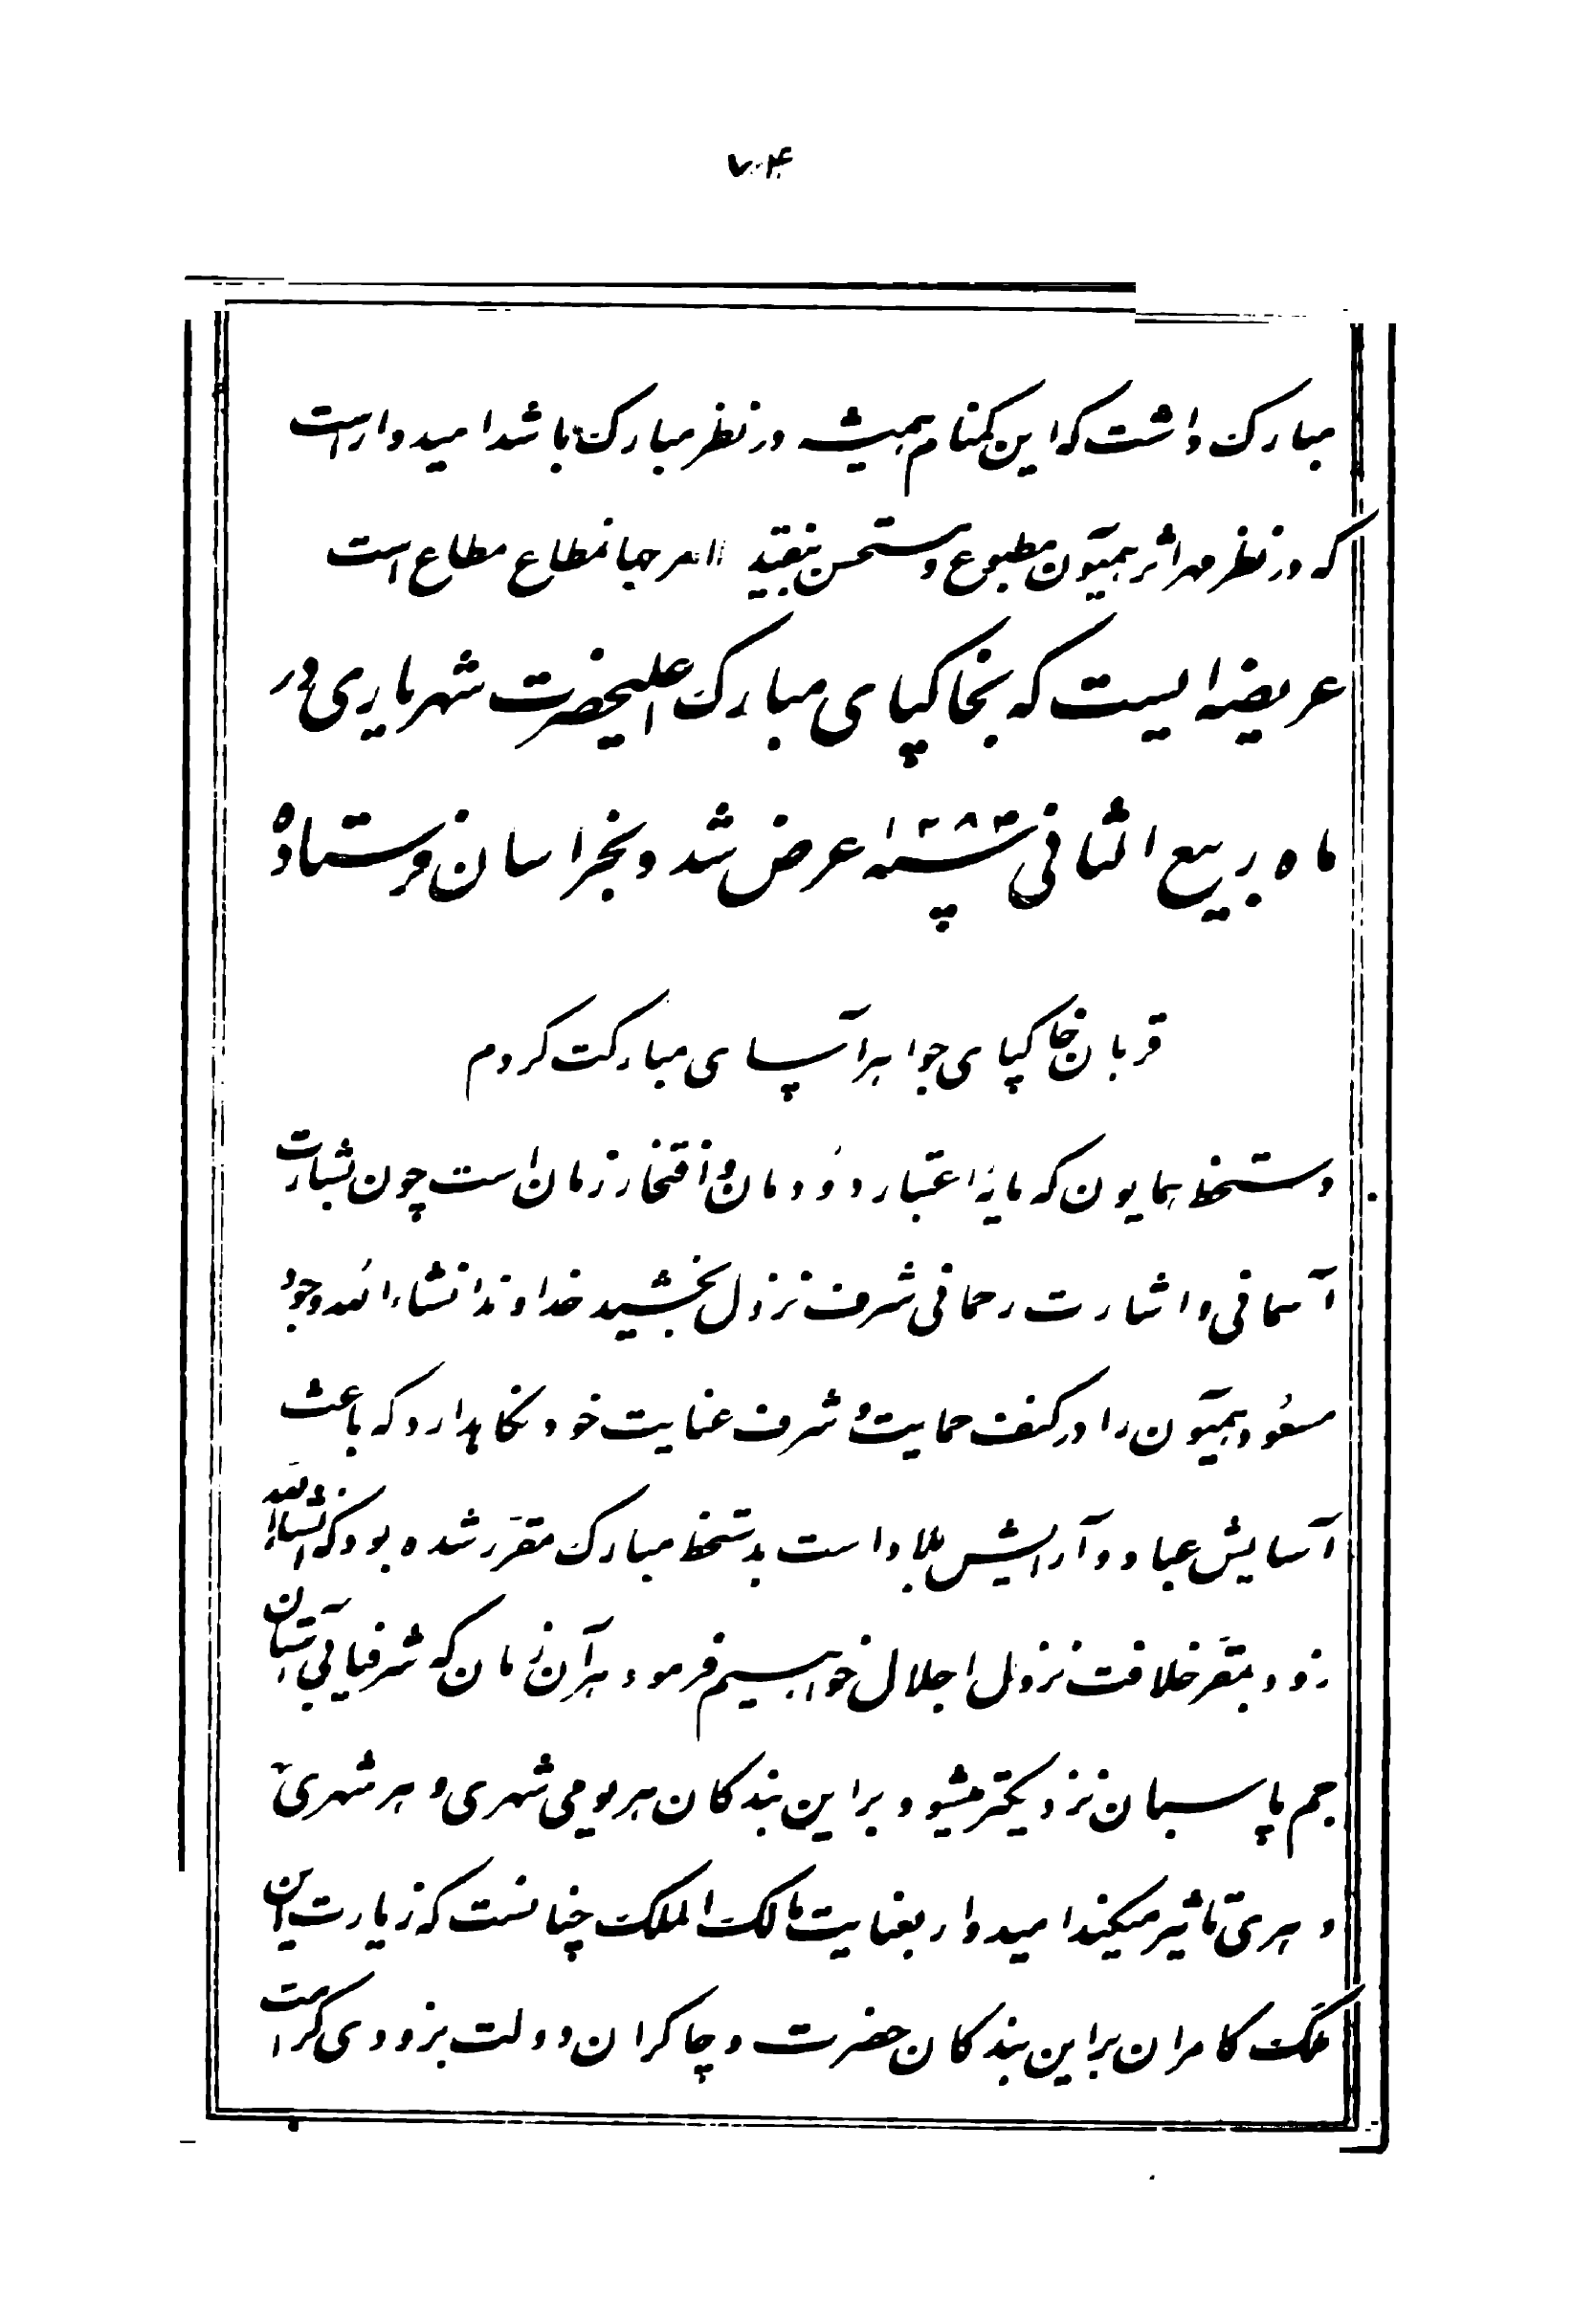 ۷۰۴
مبارک داشت که این گمنام همیشه در نظر مبارک باشد امیدوار است
که در نظر مهر اثر همیون مطبوع و مستحسن بیفتد الامر جهانمطاع مطاع است
عریضه ایست که بخاکپای مبارک اعلیحضرت شهریاری در
ماه ربیع الثانی عرض شد و بخراسان فرستاده
قربان خاکپای جواهر آسای مبارکت گردم
دستخط همایون که مایه اعتبار دودمان و افتخار زمان است چون بشارت
آسمانی و اشارت رحمانی شرف نزول بخشید خداوند انشاءالله وجود
مسعود همیون را در کنف حمایت و شرف عنایت خود نگاهدارد که باعث
آسایش عباد و آرایش بلاد است بدستخط مبارک مقرر شده بود که انشاءالله
زود بمقر خلافت نزول اجلال خواهیم فرمود هر آن زمان که شرفیابی آستان
جم پاسبان نزدیکتر میشود بر این بندگان هر یومی شهری و هر شهری
دهری تاثیر میکند امیدوار بعنایت مالک الملک چنانست که زیارت این
ملک کامران بر این بندگان حضرت و چاکران دولت بزودی کرامت